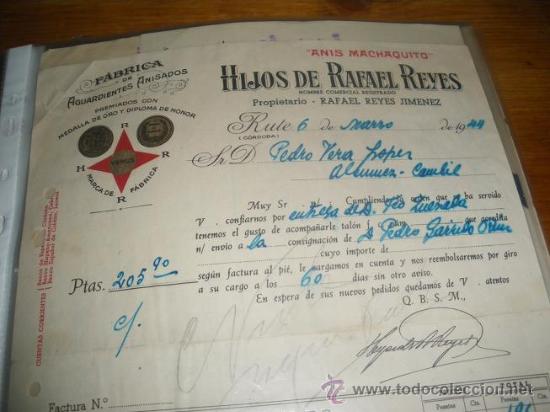 "ANIS MACHAQUITO"
FÁBRICA
DE
AGUARDIENTES ANISADOS
PREMIADOS CON
MEDALLA DE ORO Y DIPLOMA DE HONOR
HIJOS DE RAFAEL REYES
NOMBRE COMERCIAL REGISTRADO
Propietario - RAFAEL REYES JIMENEZ
Rute 6 de Marzo de 1944
(CÓRDOBA)
R
H R
VENUS
H R
R
MARCA DE FÁBRICA
Sr. D. Pedro Vera López
Muy Sr Cumpliendo orden que ha servido
V. confiarnos por entrega de D.
tenemos el gusto de acompañarle talón f que acredita
n/ envío a la consignación de D. Pedro Garrido
cuyo importe de
Ptas. 205,90
según factura al pié, le cargamos en cuenta y nos reembolsaremos por giro
a su cargo a los 60 días sin otro aviso.
En espera de sus nuevos pedidos quedamos de V. atentos
Q. B. S. M.,
c/.
CUENTAS CORRIENTES
Factura N.º
Pesetas Cts. Pesetas Cts.
www.todocoleccion.net